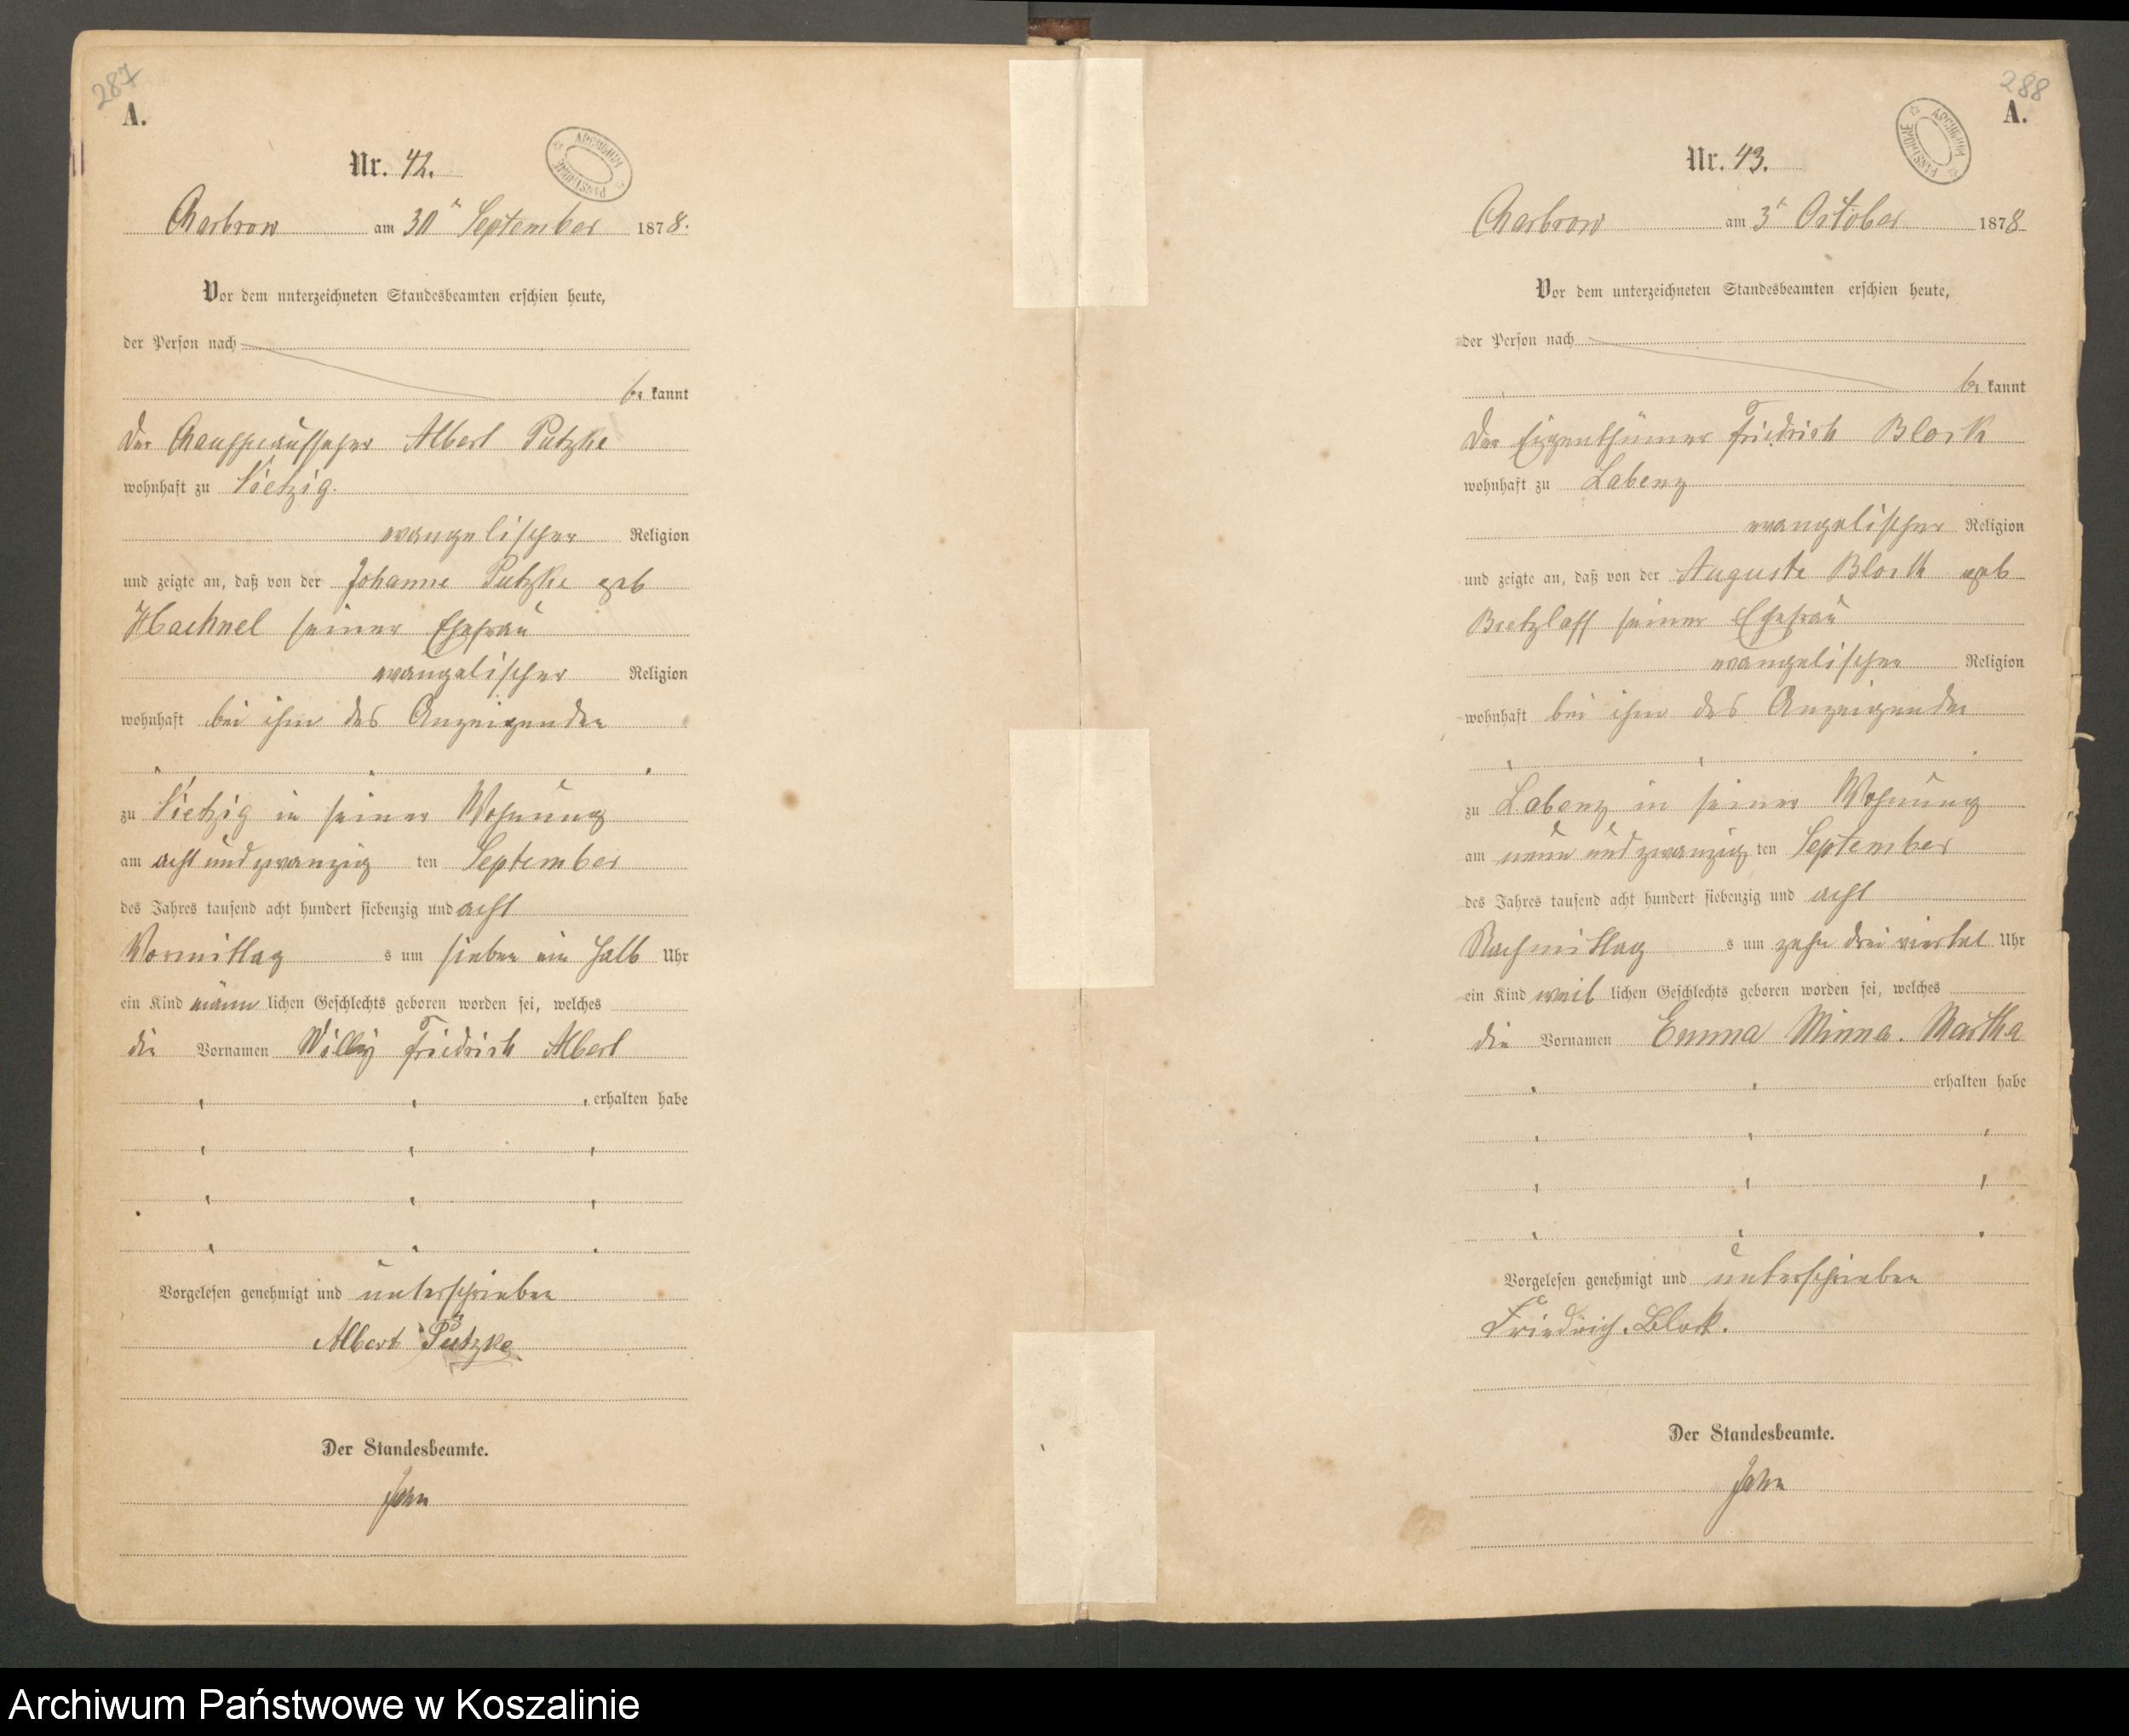 287
A.
Nr. 42.
ARCHIWUM PAŃSTWOWE
Charbrow am 30t September 1878.
Vor dem unterzeichneten Standesbeamten erschien heute,
der Person nach
be kannt
der Chausseeaufseher Albert Putzke
wohnhaft zu Vietzig.
evangelischer Religion
und zeigte an, daß von der Johanne Putzke geb
Haehnel seiner Ehefrau
evangelischer Religion
wohnhaft bei ihm des Anzeigenden
zu Vietzig in seiner Wohnung
am acht und zwanzig ten September
des Jahres tausend acht hundert siebenzig und acht
Vormittag s um sieben ein halb Uhr
ein Kind männ lichen Geschlechts geboren worden sei, welches
die Vornamen Willy Friedrich Albert
erhalten habe
Vorgelesen genehmigt und unterschrieben
Albert Putzke
Der Standesbeamte.
John
288
A.
Nr. 43.
ARCHIWUM PAŃSTWOWE
Charbrow am 3t October 1878
Vor dem unterzeichneten Standesbeamten erschien heute,
der Person nach
be kannt
der Eigenthümer Friedrich Block
wohnhaft zu Labenz
evangelischer Religion
und zeigte an, daß von der Auguste Block geb
Bretzlaff seiner Ehefrau
evangelischer Religion
wohnhaft bei ihm des Anzeigenden
zu Labenz in seiner Wohnung
am neun und zwanzig ten September
des Jahres tausend acht hundert siebenzig und acht
Nachmittag s um zehn drei viertel Uhr
ein Kind weib lichen Geschlechts geboren worden sei, welches
die Vornamen Emma Minna. Martha
erhalten habe
Vorgelesen genehmigt und unterschrieben
Friedrich. Block.
Der Standesbeamte.
John
Archiwum Państwowe w Koszalinie